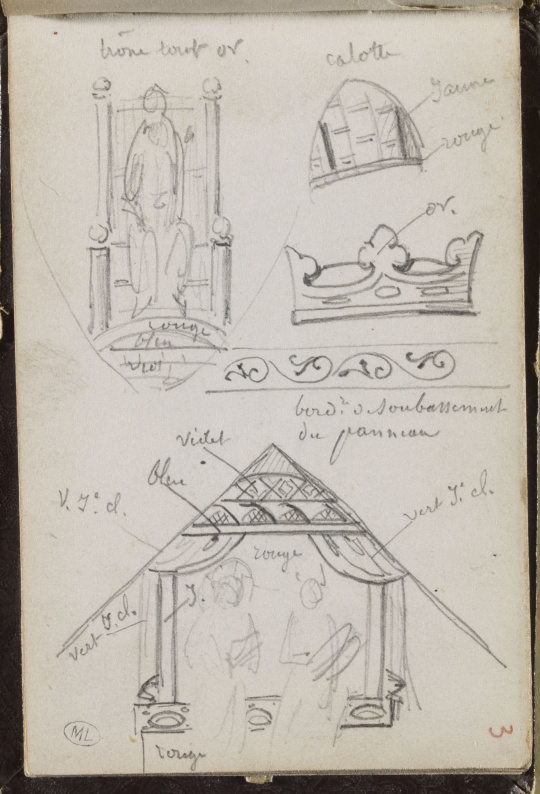 trône tout or.
calotte
Jaune
rouge
or.
rouge
bleu
bord.re d soubassement
du panneau
violet
bleu
V. J.e cl.
vert J.e cl.
rouge
J.
vert J. cl.
rouge
ML
3